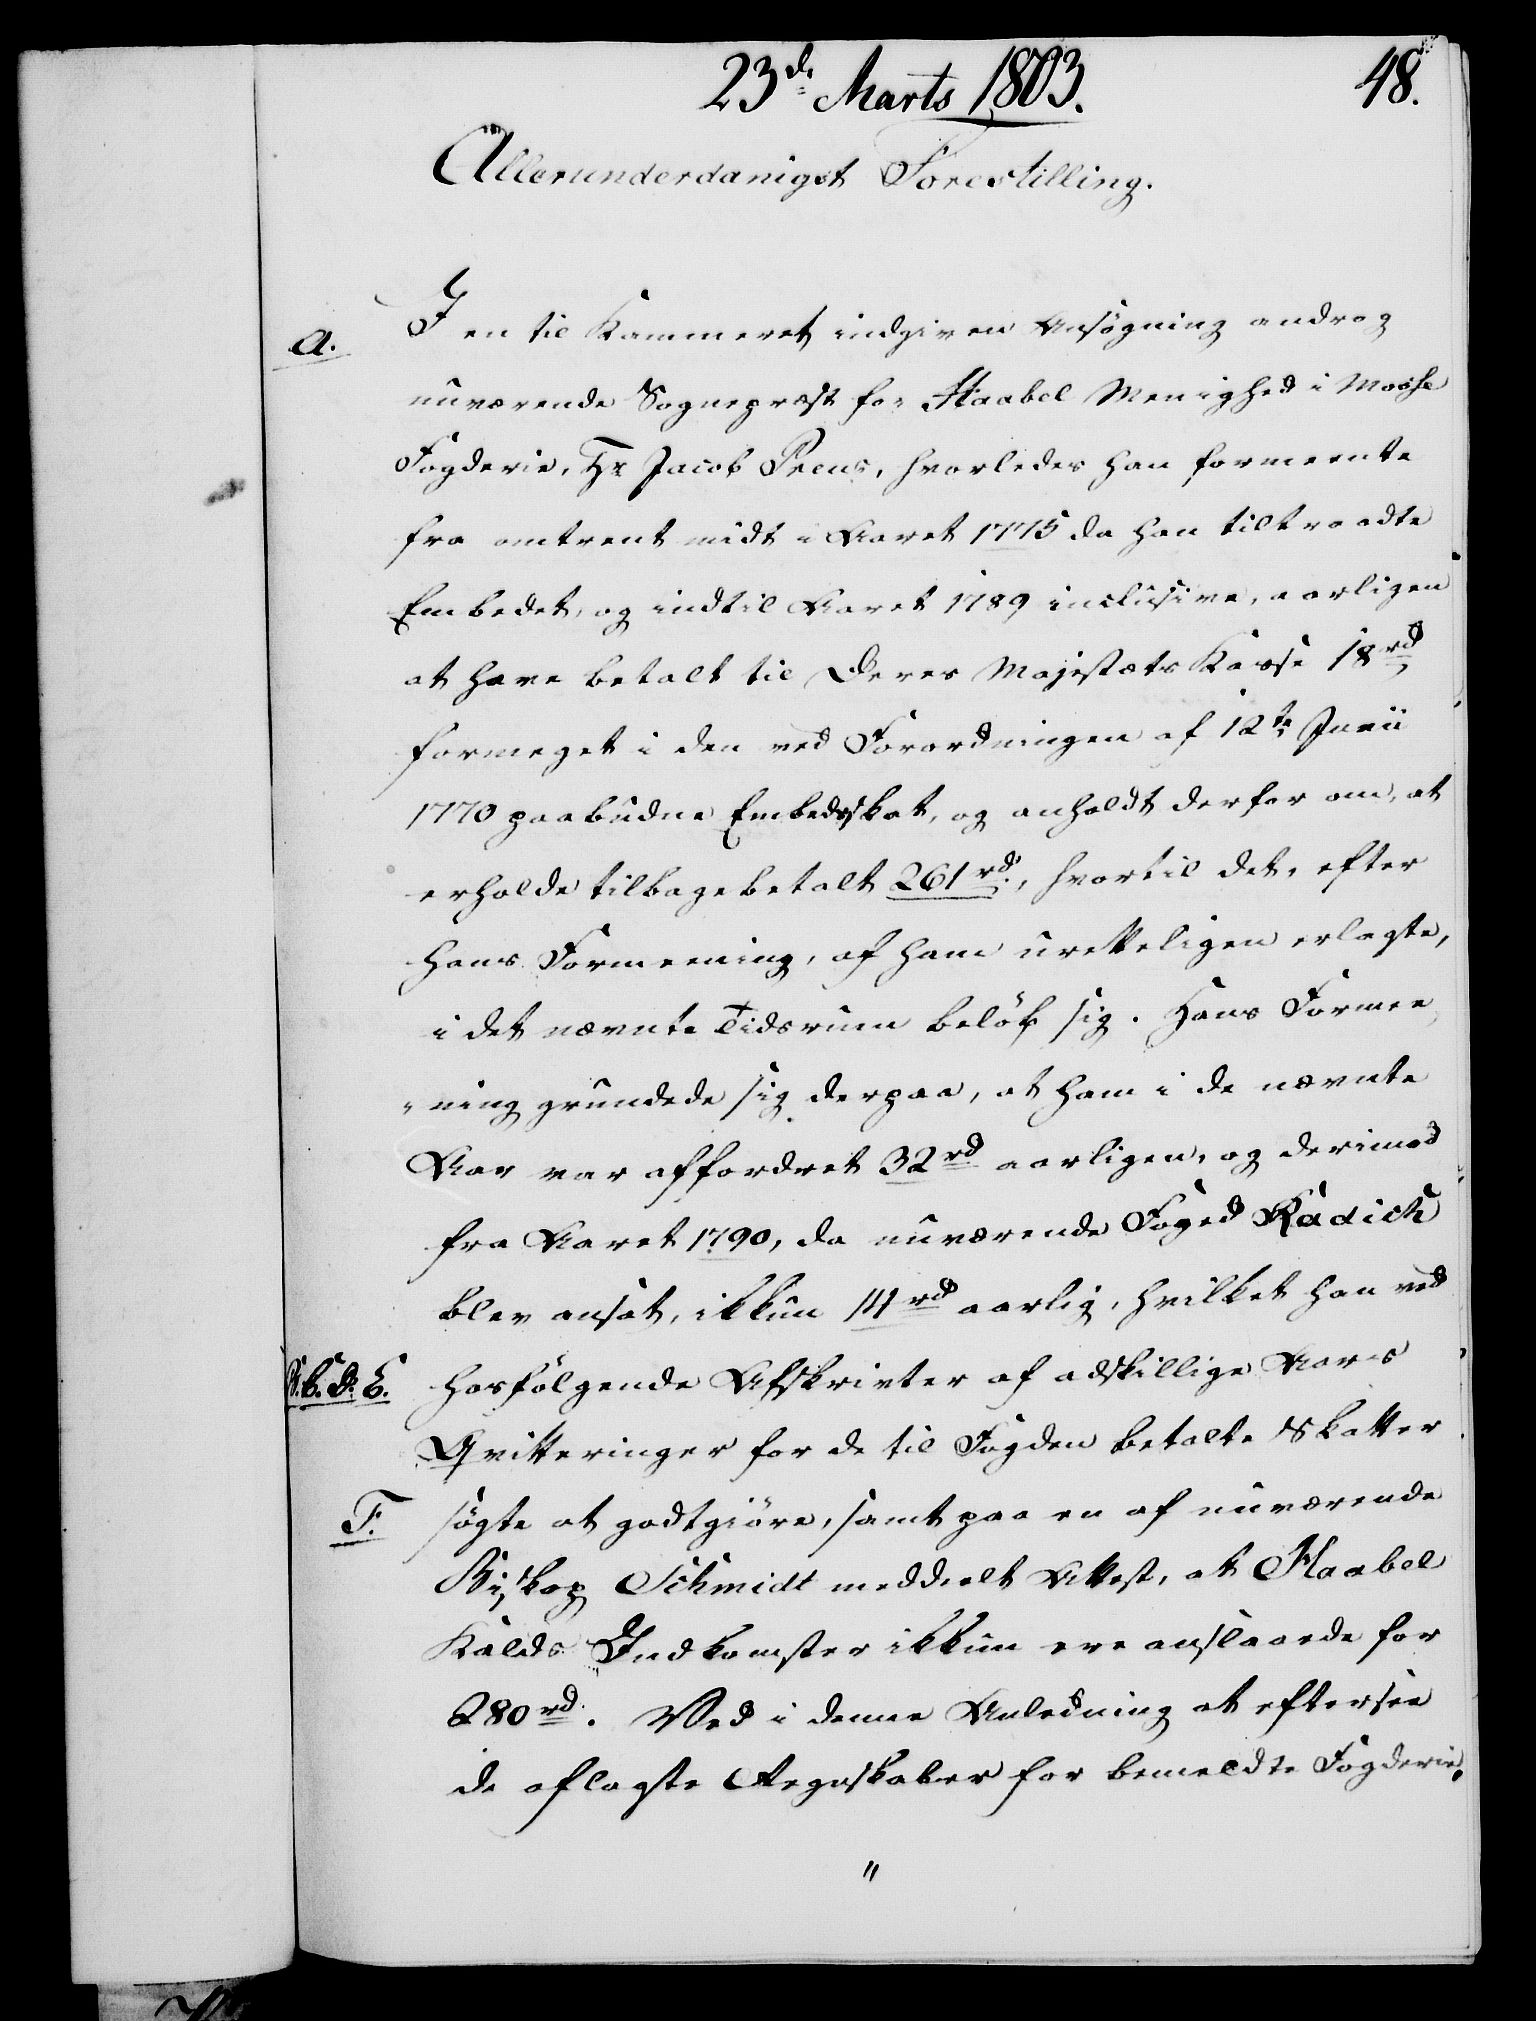 23de Marts 1803. 48.
Allerunderdanigst Forestilling.
A. I en til Kammeret indgiven Ansøgning androg
nuværende Sognepræst for Haabel Menighed i Mosse
Fogderie, Hr Jacob Preus, hvorledes han formeente
fra omtrent midt i Aaret 1775 da han tiltraadte
Embedet, og indtil Aaret 1789 inclusive, aarligen
at have betalt til Deres Majestæts Kasse 18rd
formeget i den ved Forordningen af 12te Junii
1770 paabudne Embedsskat, og anholdt derfor om, at
erholde tilbagebetalt 261rd, hvortil det, efter
hans Formeening, af ham uretteligen erlagte,
i det nævnte Tidsrum beløb sig. Hans Formee
-ning grundede sig derpaa, at ham i de nævnte
Aar var affordret 32rd aarligen, og derimod
fra Aaret 1790, da nuværende Foged Radich
blev ansat, ikkun 14rd aarlig, hvilket han ved
B. C. D. E. hosfølgende Afskrivter af adskillige Aars
Qvitteringer for de til Fogden betalte Skatter
F. søgte at godtgiøre, samt paa en af nuværende
Biskop Schmidt meddeelt Attest, at Haabel
Kalds Indkomster ikkun ere anslaaede for
280rd. Ved i denne Anledning at eftersee
de aflagte Regnskaber for bemeldte Fogderie,
"